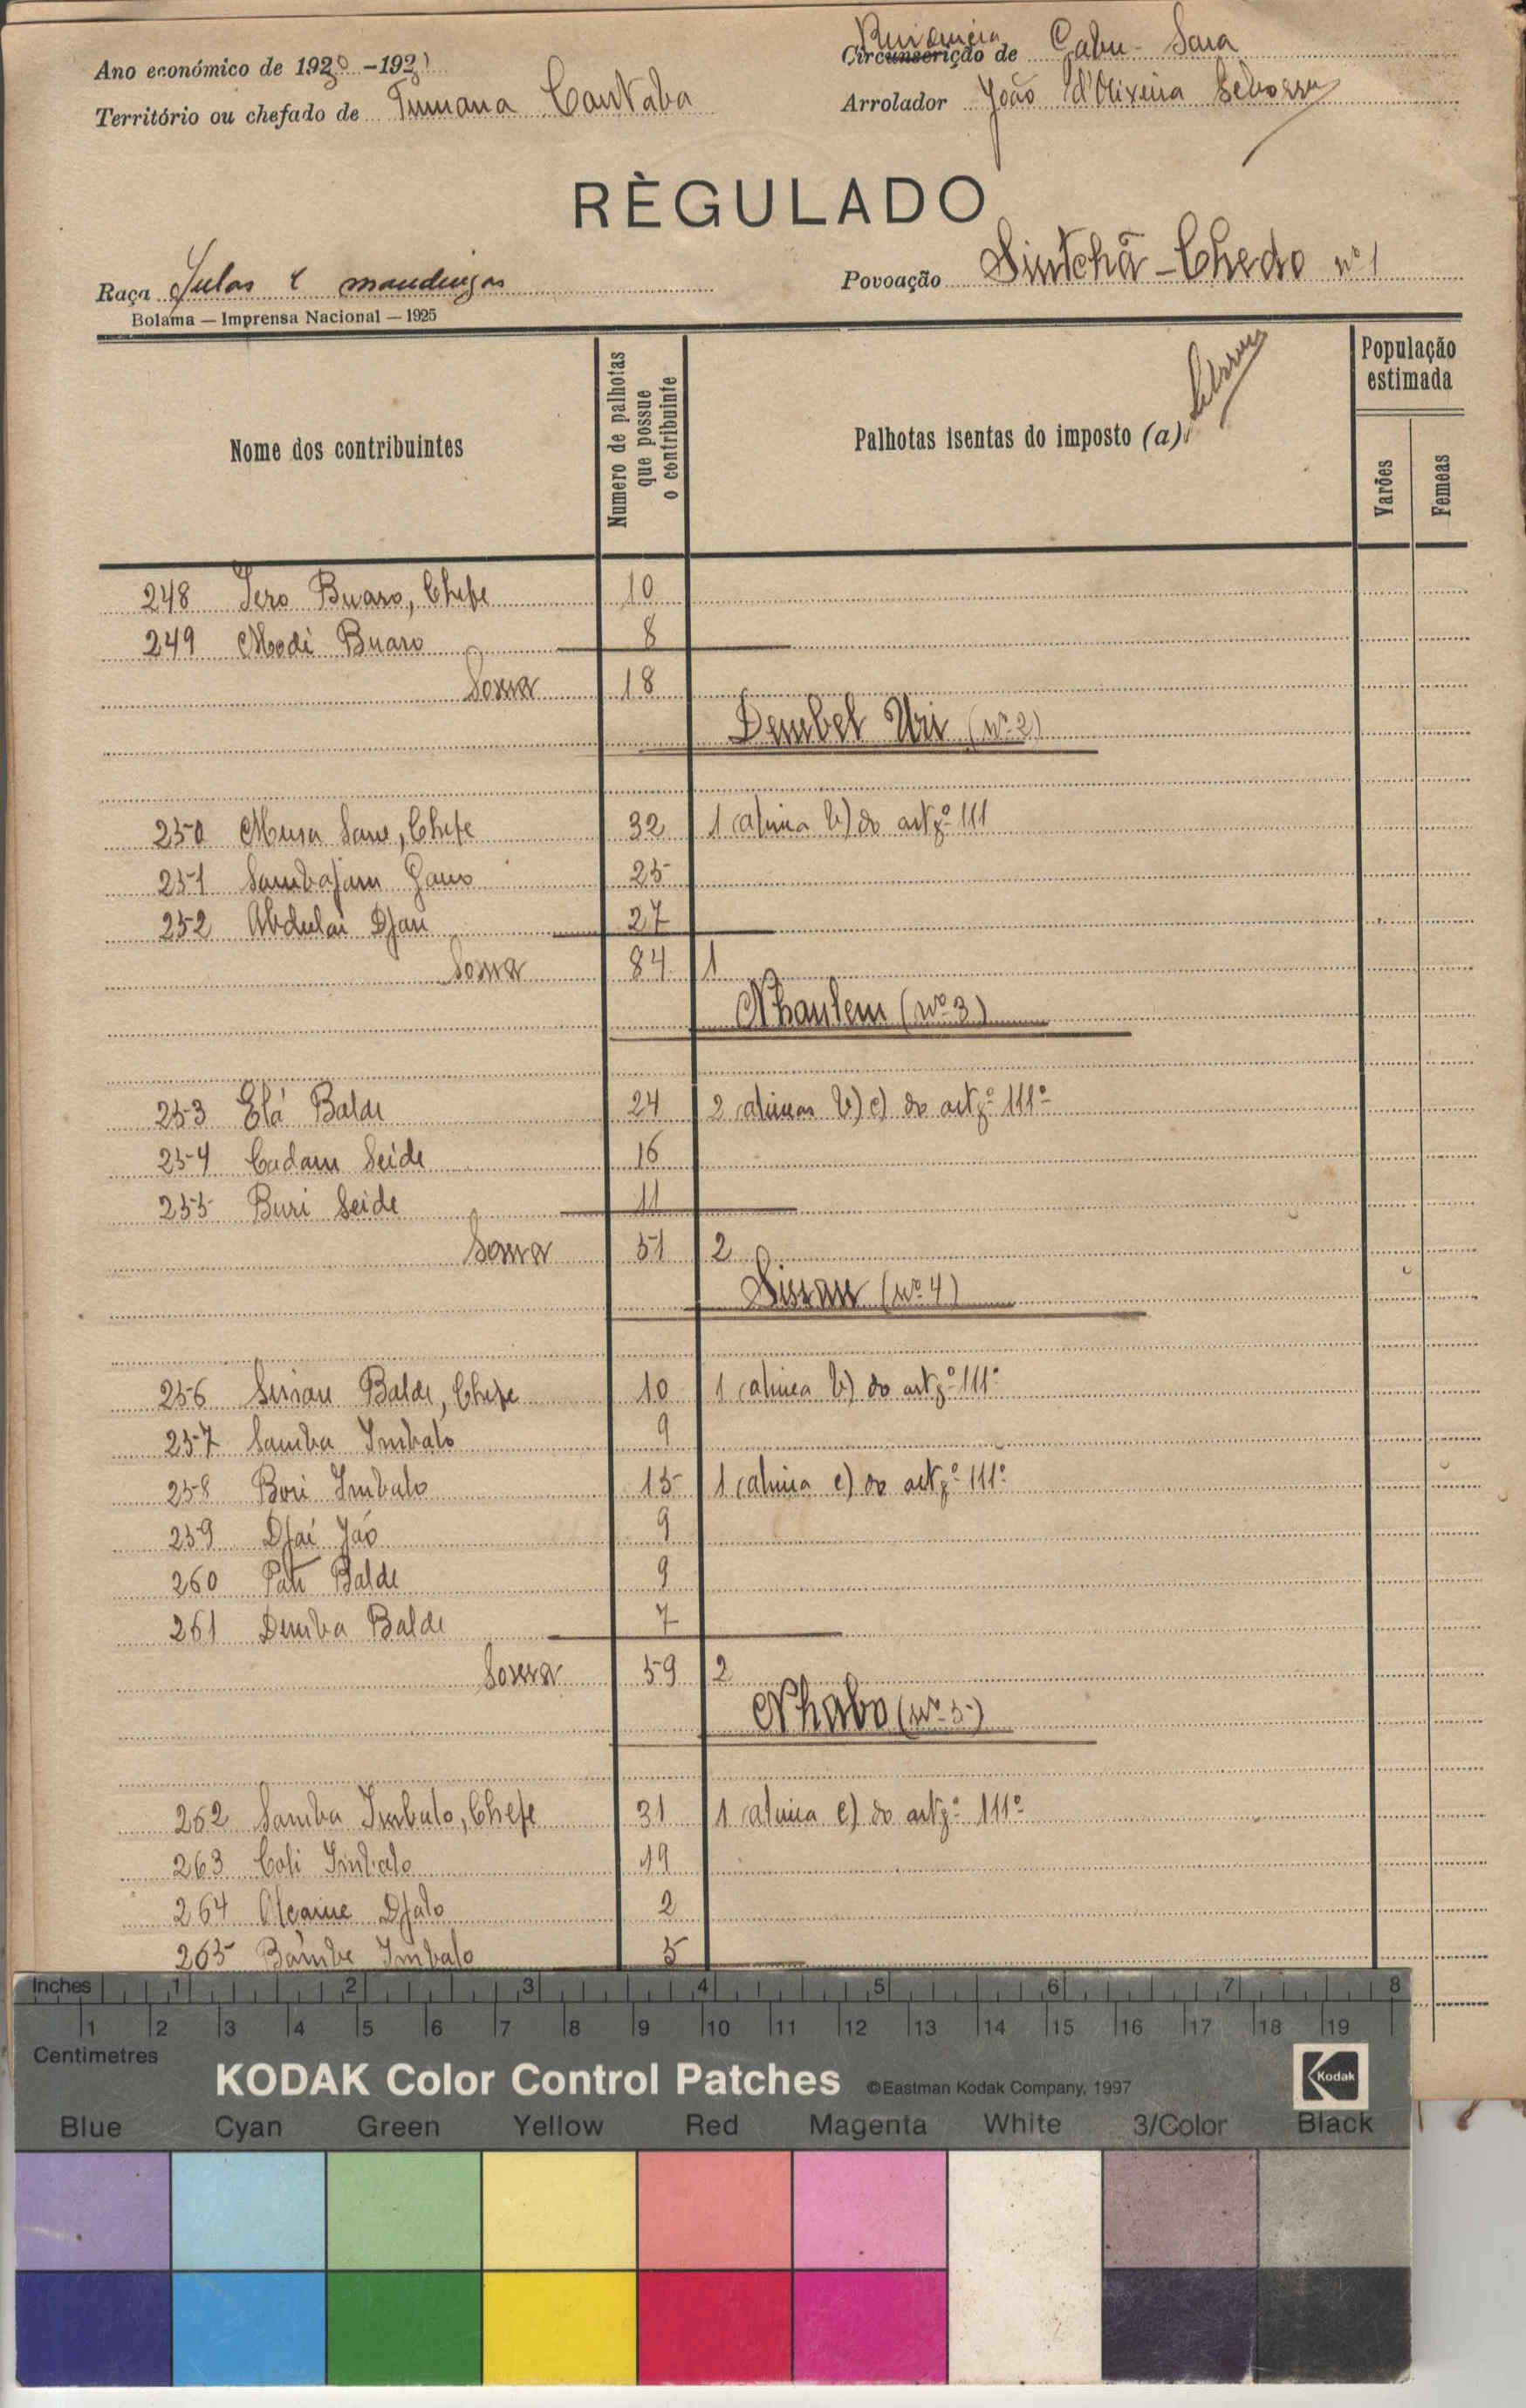 Ano económico de 1930-1931
Residencia
Circunscrição de Gabu-Sara
Território ou chefado de Tumana Cantaba
Arrolador João d'Oliveira
RÈGULADO
Raça Fulas e mandingas
Povoação Sintchã-Chedo nº 1
Bolama — Imprensa Nacional — 1925
Nome dos contribuintes
Numero de palhotas que possue o contribuinte
Palhotas isentas do imposto (a)
População estimada
Varões
Femeas
248 Iero Buaro, Chefe 10
249 Modi Buaro 8
Soma 18
Dembel Uri (nº 2)
250 Musa Sane, Chefe 32 1 (alinea b) do artgº 111
251 Sambajam Gano 25
252 Abdulai Djau 27
Soma 84 1
Nhanlem (nº 3)
253 Elá Balde 24 2 (alineas b) c) do artgº 111º
254 Cadam Seide 16
255 Buri Seide 11
Soma 51 2
Sissau (nº 4)
256 Sissau Balde, Chefe 10 1 (alinea b) do artgº 111º
257 Samba Imbalo 9
258 Bori Imbalo 15 1 (alinea c) do artgº 111º
259 Djai Jáo 9
260 Pati Balde 9
261 Demba Balde 7
Soma 59 2
Nhabo (nº 5)
262 Samba Imbalo, Chefe 31 1 (alinea c) do artgº 111º
263 Coli Imbalo 19
264 Alçaine Djalo 2
265 Bambe Imbalo 5
Inches 1 2 3 4 5 6 7 8
1 2 3 4 5 6 7 8 9 10 11 12 13 14 15 16 17 18 19
Centimetres
KODAK Color Control Patches ©Eastman Kodak Company, 1997 Kodak
Blue Cyan Green Yellow Red Magenta White 3/Color Black